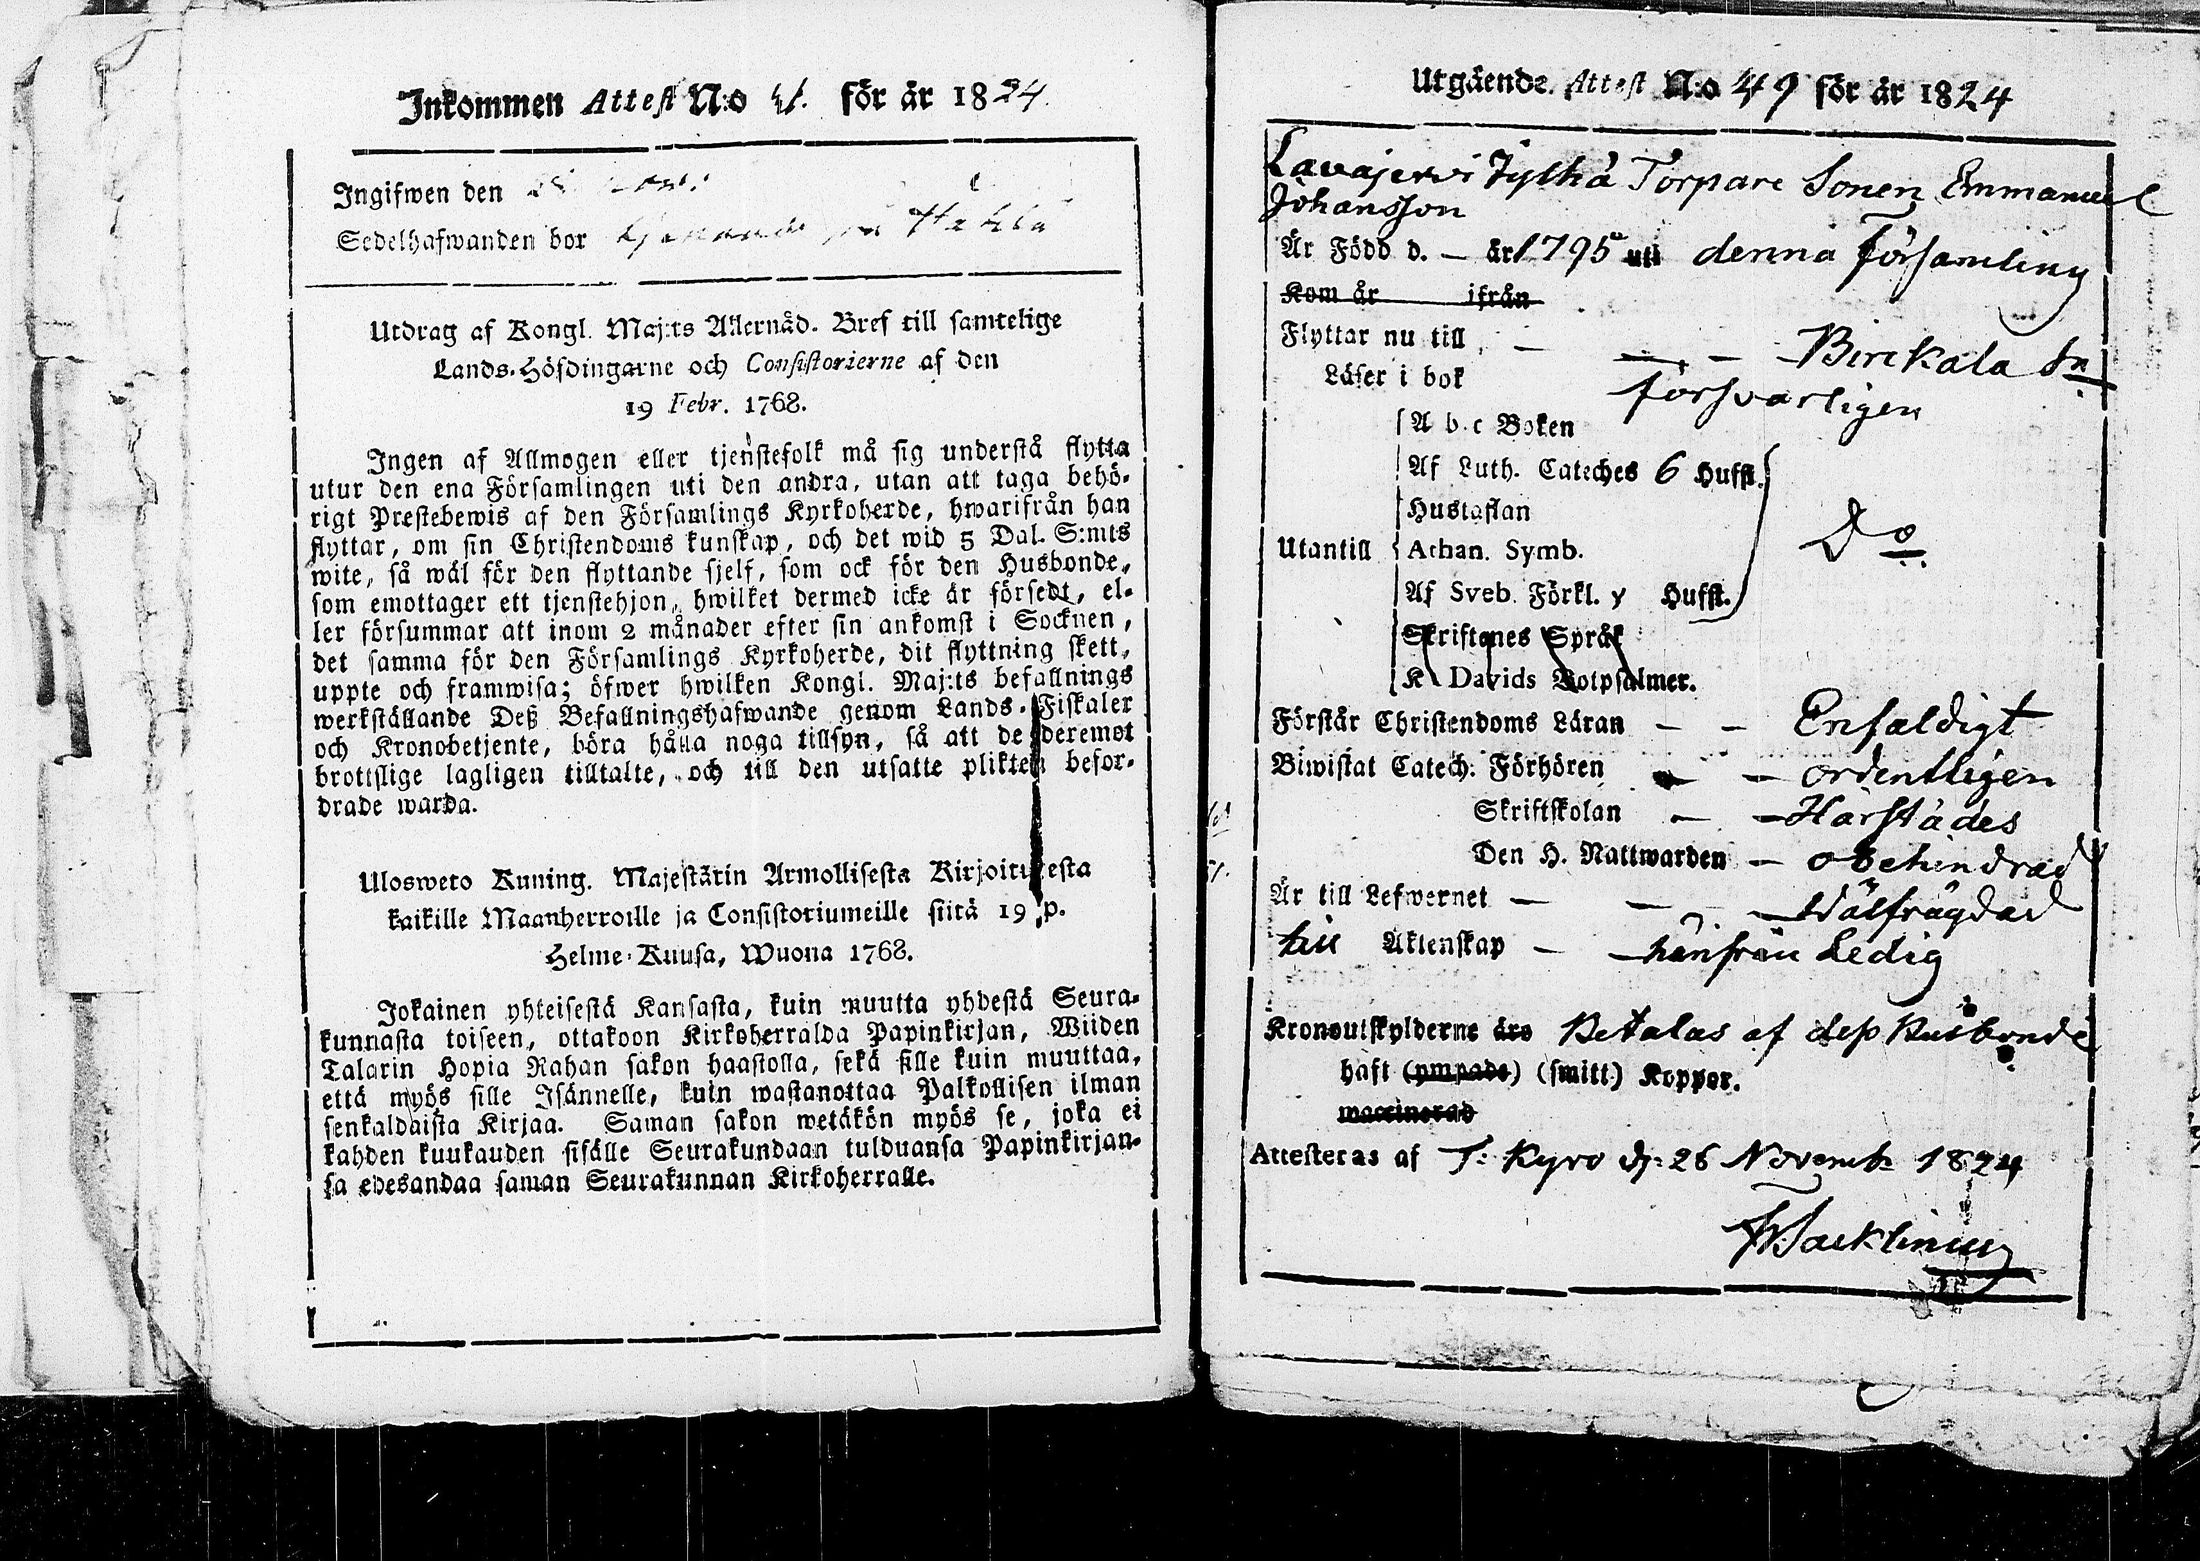 Inkommen Attest N:o för år 1824.
Ingifwen den
Sedelhafwanden bor
Utdrag af Kongl. Maj:ts Allernåd. Bref till samtelige
Lands-Höfdingarne och Consistorierne af den
19 Febr. 1768.
Ingen af Allmogen eller tjenstefolk må sig understå flytta
utur den ena Församlingen uti den andra, utan att taga behö-
rigt Prestebewis af den Församlings Kyrkoherde, hwarifrån han
flyttar, om sin Christendoms kunskap, och det wid 5 Dal. S:mts
wite, så wäl för den flyttande sjelf, som ock för den Husbonde,
som emottager ett tjenstehjon, hwilket dermed icke är försedt, el-
ler försummar att inom 2 månader efter sin ankomst i Socknen,
det samma för den Församlings Kyrkoherde, dit flyttning skett,
uppte och framwisa; öfwer hwilken Kongl. Maj:ts befallnings
werkställande Deß Befallningshafwande genom Lands-Fiskaler
och Kronobetjente, böra hålla noga tillsyn, så att de deremot
brottslige lagligen tilltalte, och till den utsatte plikten befor-
drade warda.
Ulosweto Kuning. Majestätin Armollisesta Kirjoituxesta
kaikille Maanherroille ja Consistoriumeille siitä 19 p.
Helme-Kuusa, Wuona 1768.
Jokainen yhteisestä Kansasta, kuin muutta yhdestä Seura-
kunnasta toiseen, ottakoon Kirkoherralda Papinkirjan, Wiiden
Talarin Hopia Rahan sakon haastolla, sekä sille kuin muuttaa,
että myös sille Isännelle, kuin wastanottaa Palkollisen ilman
senkaldaista Kirjaa. Saman sakon wetäkön myös se, joka ei
kahden kuukauden sisälle Seurakundaan tulduansa Papinkirjan-
sa edesandaa saman Seurakunnan Kirkoherralle.
Utgående Attest N:o 49 för år 1824
Lavajervi Jylhä Torpare Sonen Emmanuel
Johansson
Är Född d. — år 1795 uti denna Församling
Kom år ifrån
Flyttar nu till — — — Birckala Sn
Läser i bok försvarligen
A b c Boken
Af Luth. Cateches 6 Hufst.
Hustaflan
Utantill Athan. Symb. Do
Af Sveb. Förkl. y Hufst.
Skriftenes Språk
K Davids Botpsalmer.
Förstår Christendoms Läran — — Enfaldigt
Biwistat Catech: Förhören — — ordentligen
Skriftskolan — — Härstädes
Den H. Nattwarden — obehindrad
Är till Lefwernet — — — Wälfrägdad
till Äktenskap — — hänfrån Ledig
Kronoutskylderne äro Betalas af dess Husbonde
haft (ympade) (smitt) Koppor.
waccinerad
Attesteras af T: Kyro d: 26 Novemb: 1824